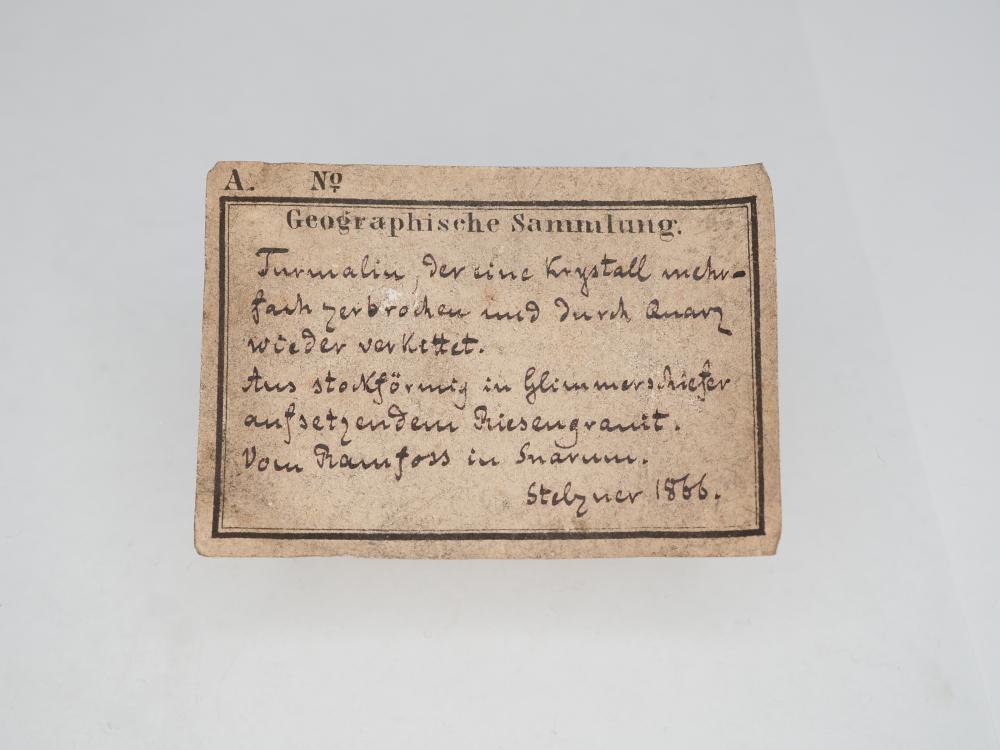 A. No
Geographische Sammlung.
Turmalin, der eine Krystall mehr-
fach zerbrochen und durch Quarz
wieder verkittet.
Aus stockförmig in Glimmerschiefer
aufsetzendem Riesengranit.
Vom Ramfoss in Snarum.
Stelzner 1866.